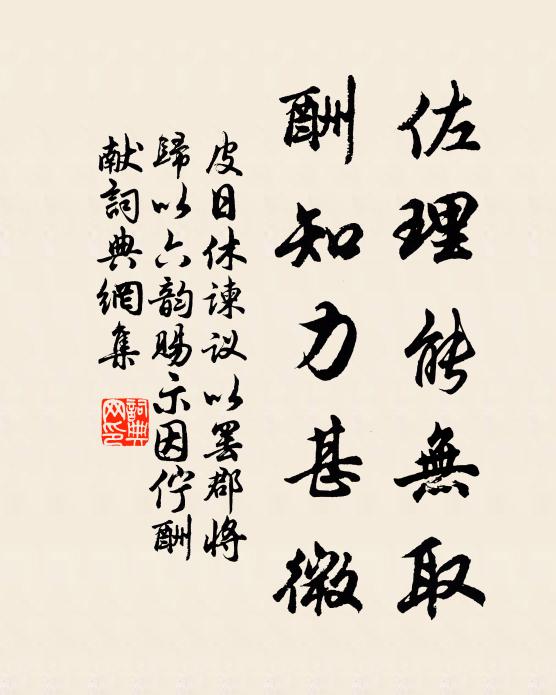 佐理能無取
酬知力甚微
皮日休諫议以罢郡將
歸以六韵賜示因佇酬
献詞典網集
詞典
网印